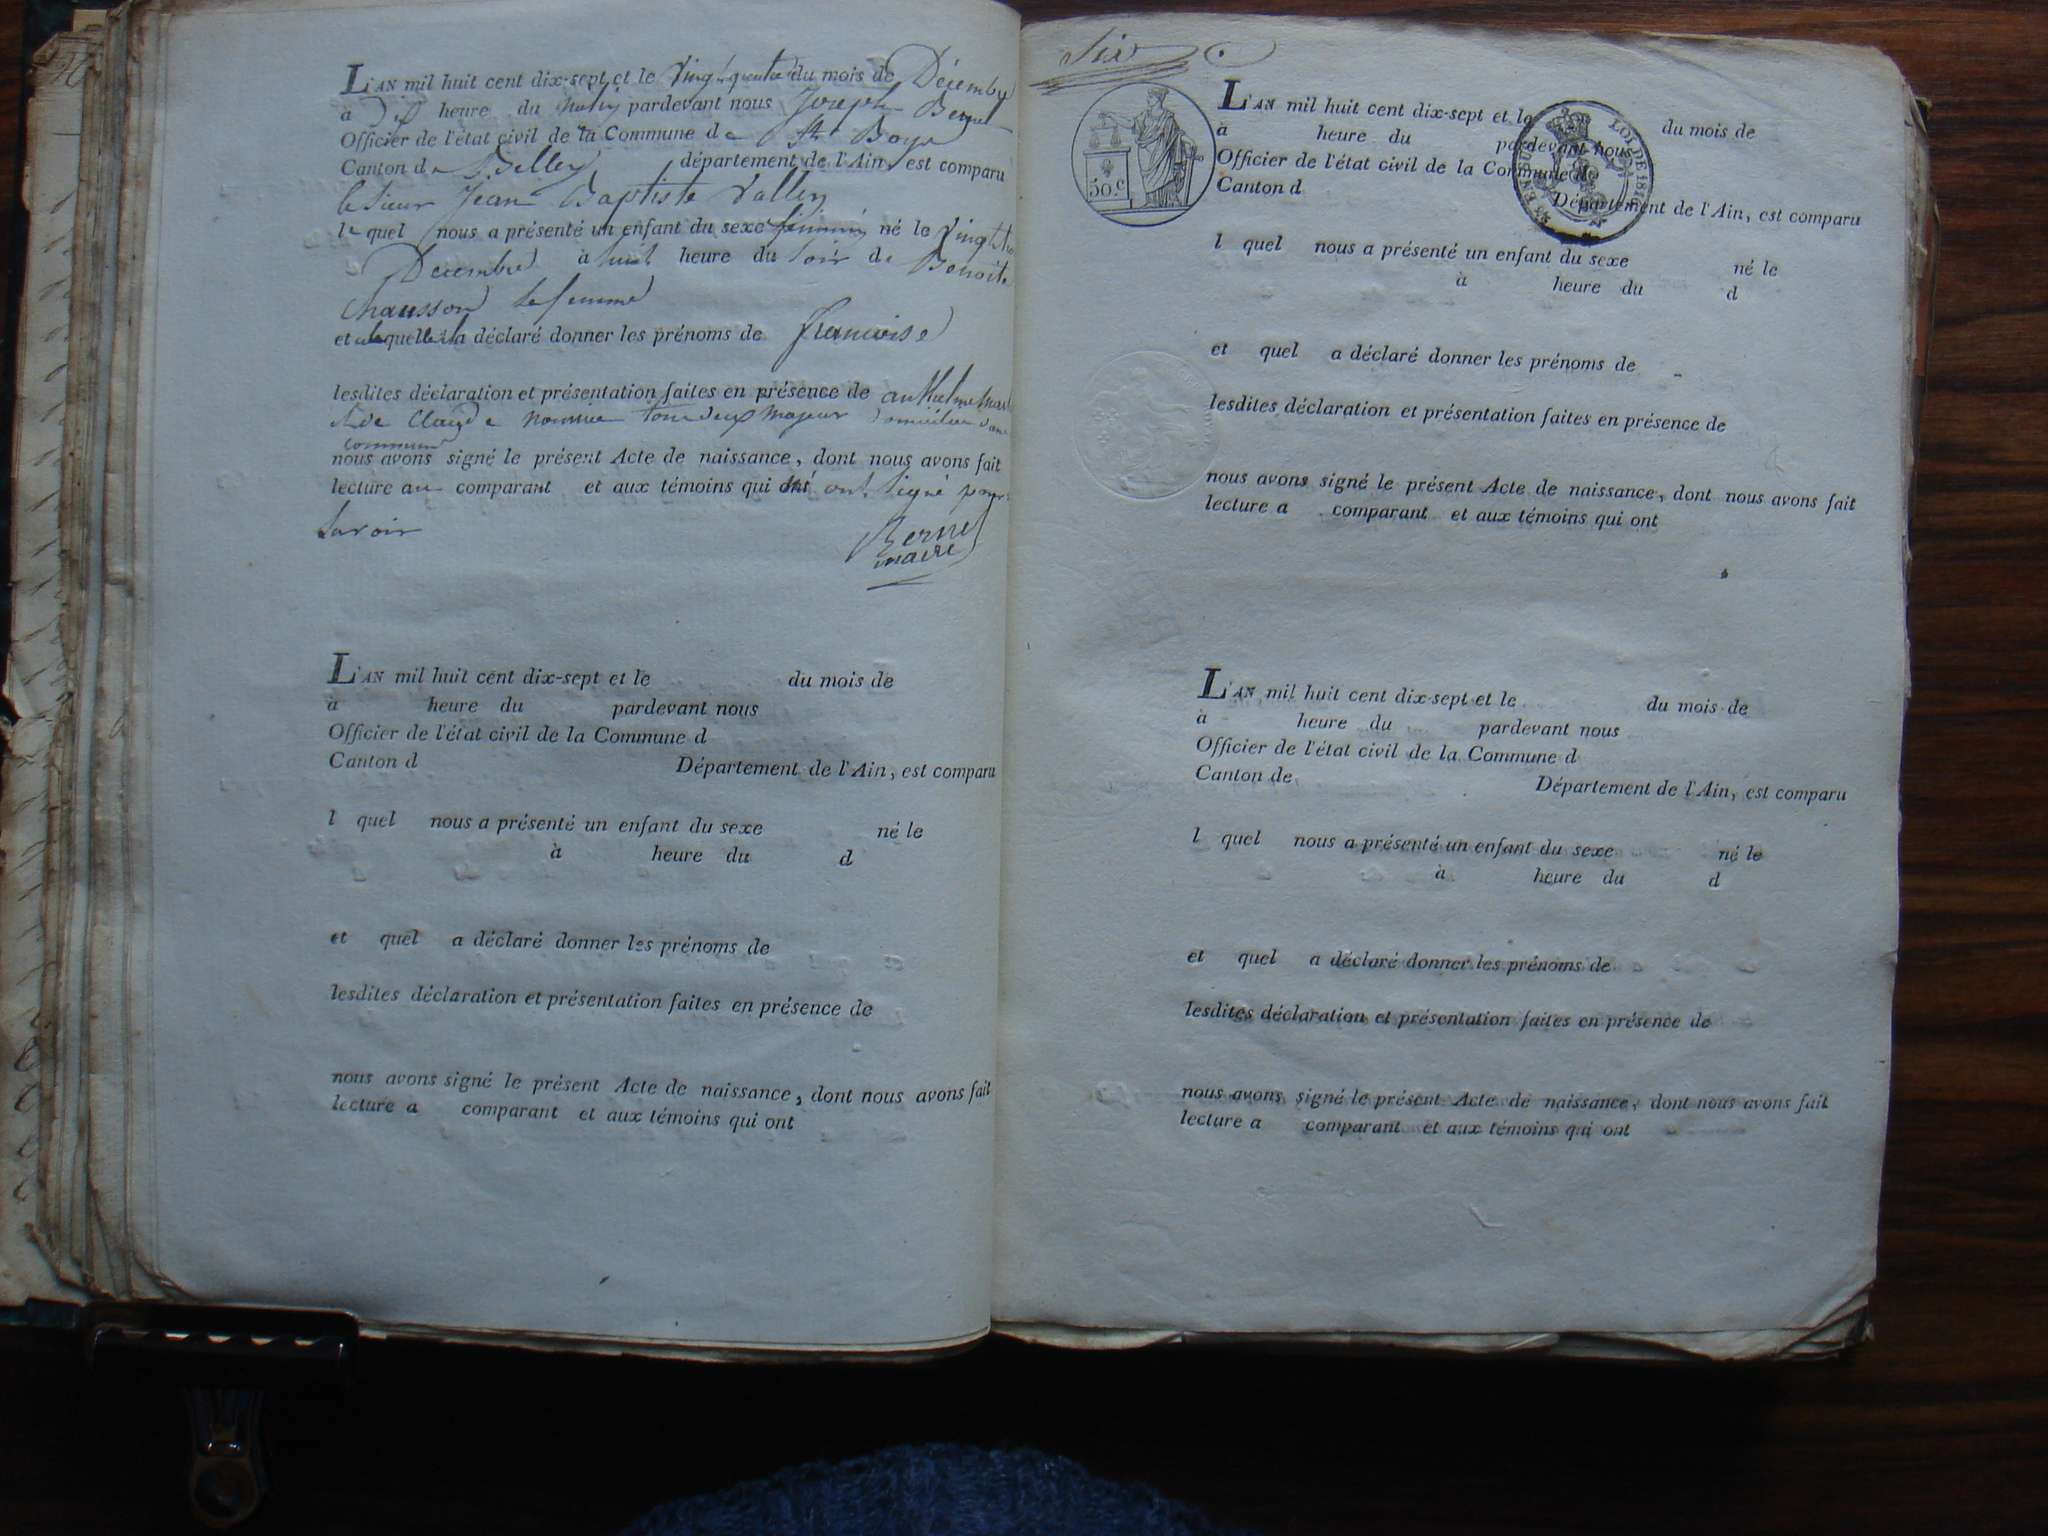 L'AN mil huit cent dix-sept et le vingtquatre du mois de Décembre
à Dix heure du matin pardevant nous Joseph Bernet
Officier de l'état civil de la Commune de St Boys
Canton de Belley département de l'Ain, est comparu
le sieur Jean Baptiste Vallin
lequel nous a présenté un enfant du sexe feminin né le vingt
Decembre à huit heure du soir de Benoite
Chausson sa femme
et quel a déclaré donner les prénoms de francoise
lesdites déclaration et présentation faites en présence de anthelme
et de Claude tous deux majeur domicilier dans
commune
nous avons signé le présent Acte de naissance, dont nous avons fait
lecture au comparant et aux témoins qui ont signé pour
savoir
Bernet
maire
L'AN mil huit cent dix-sept et le du mois de
à heure du pardevant nous
Officier de l'état civil de la Commune d
Canton d Département de l'Ain, est comparu
l quel nous a présenté un enfant du sexe né le
à heure du d
et quel a déclaré donner les prénoms de
lesdites déclaration et présentation faites en présence de
nous avons signé le présent Acte de naissance, dont nous avons fait
lecture a comparant et aux témoins qui ont
Six
50 c
LOI DE 1816
L'AN mil huit cent dix-sept et le du mois de
à heure du pardevant nous
Officier de l'état civil de la Commune d
Canton d Département de l'Ain, est comparu
l quel nous a présenté un enfant du sexe né le
à heure du d
et quel a déclaré donner les prénoms de
lesdites déclaration et présentation faites en présence de
nous avons signé le présent Acte de naissance, dont nous avons fait
lecture a comparant et aux témoins qui ont
L'AN mil huit cent dix-sept et le du mois de
à heure du pardevant nous
Officier de l'état civil de la Commune d
Canton de Département de l'Ain, est comparu
l quel nous a présenté un enfant du sexe né le
à heure du d
et quel a déclaré donner les prénoms de
lesdites déclaration et présentation faites en présence de
nous avons signé le présent Acte de naissance, dont nous avons fait
lecture a comparant et aux témoins qui ont